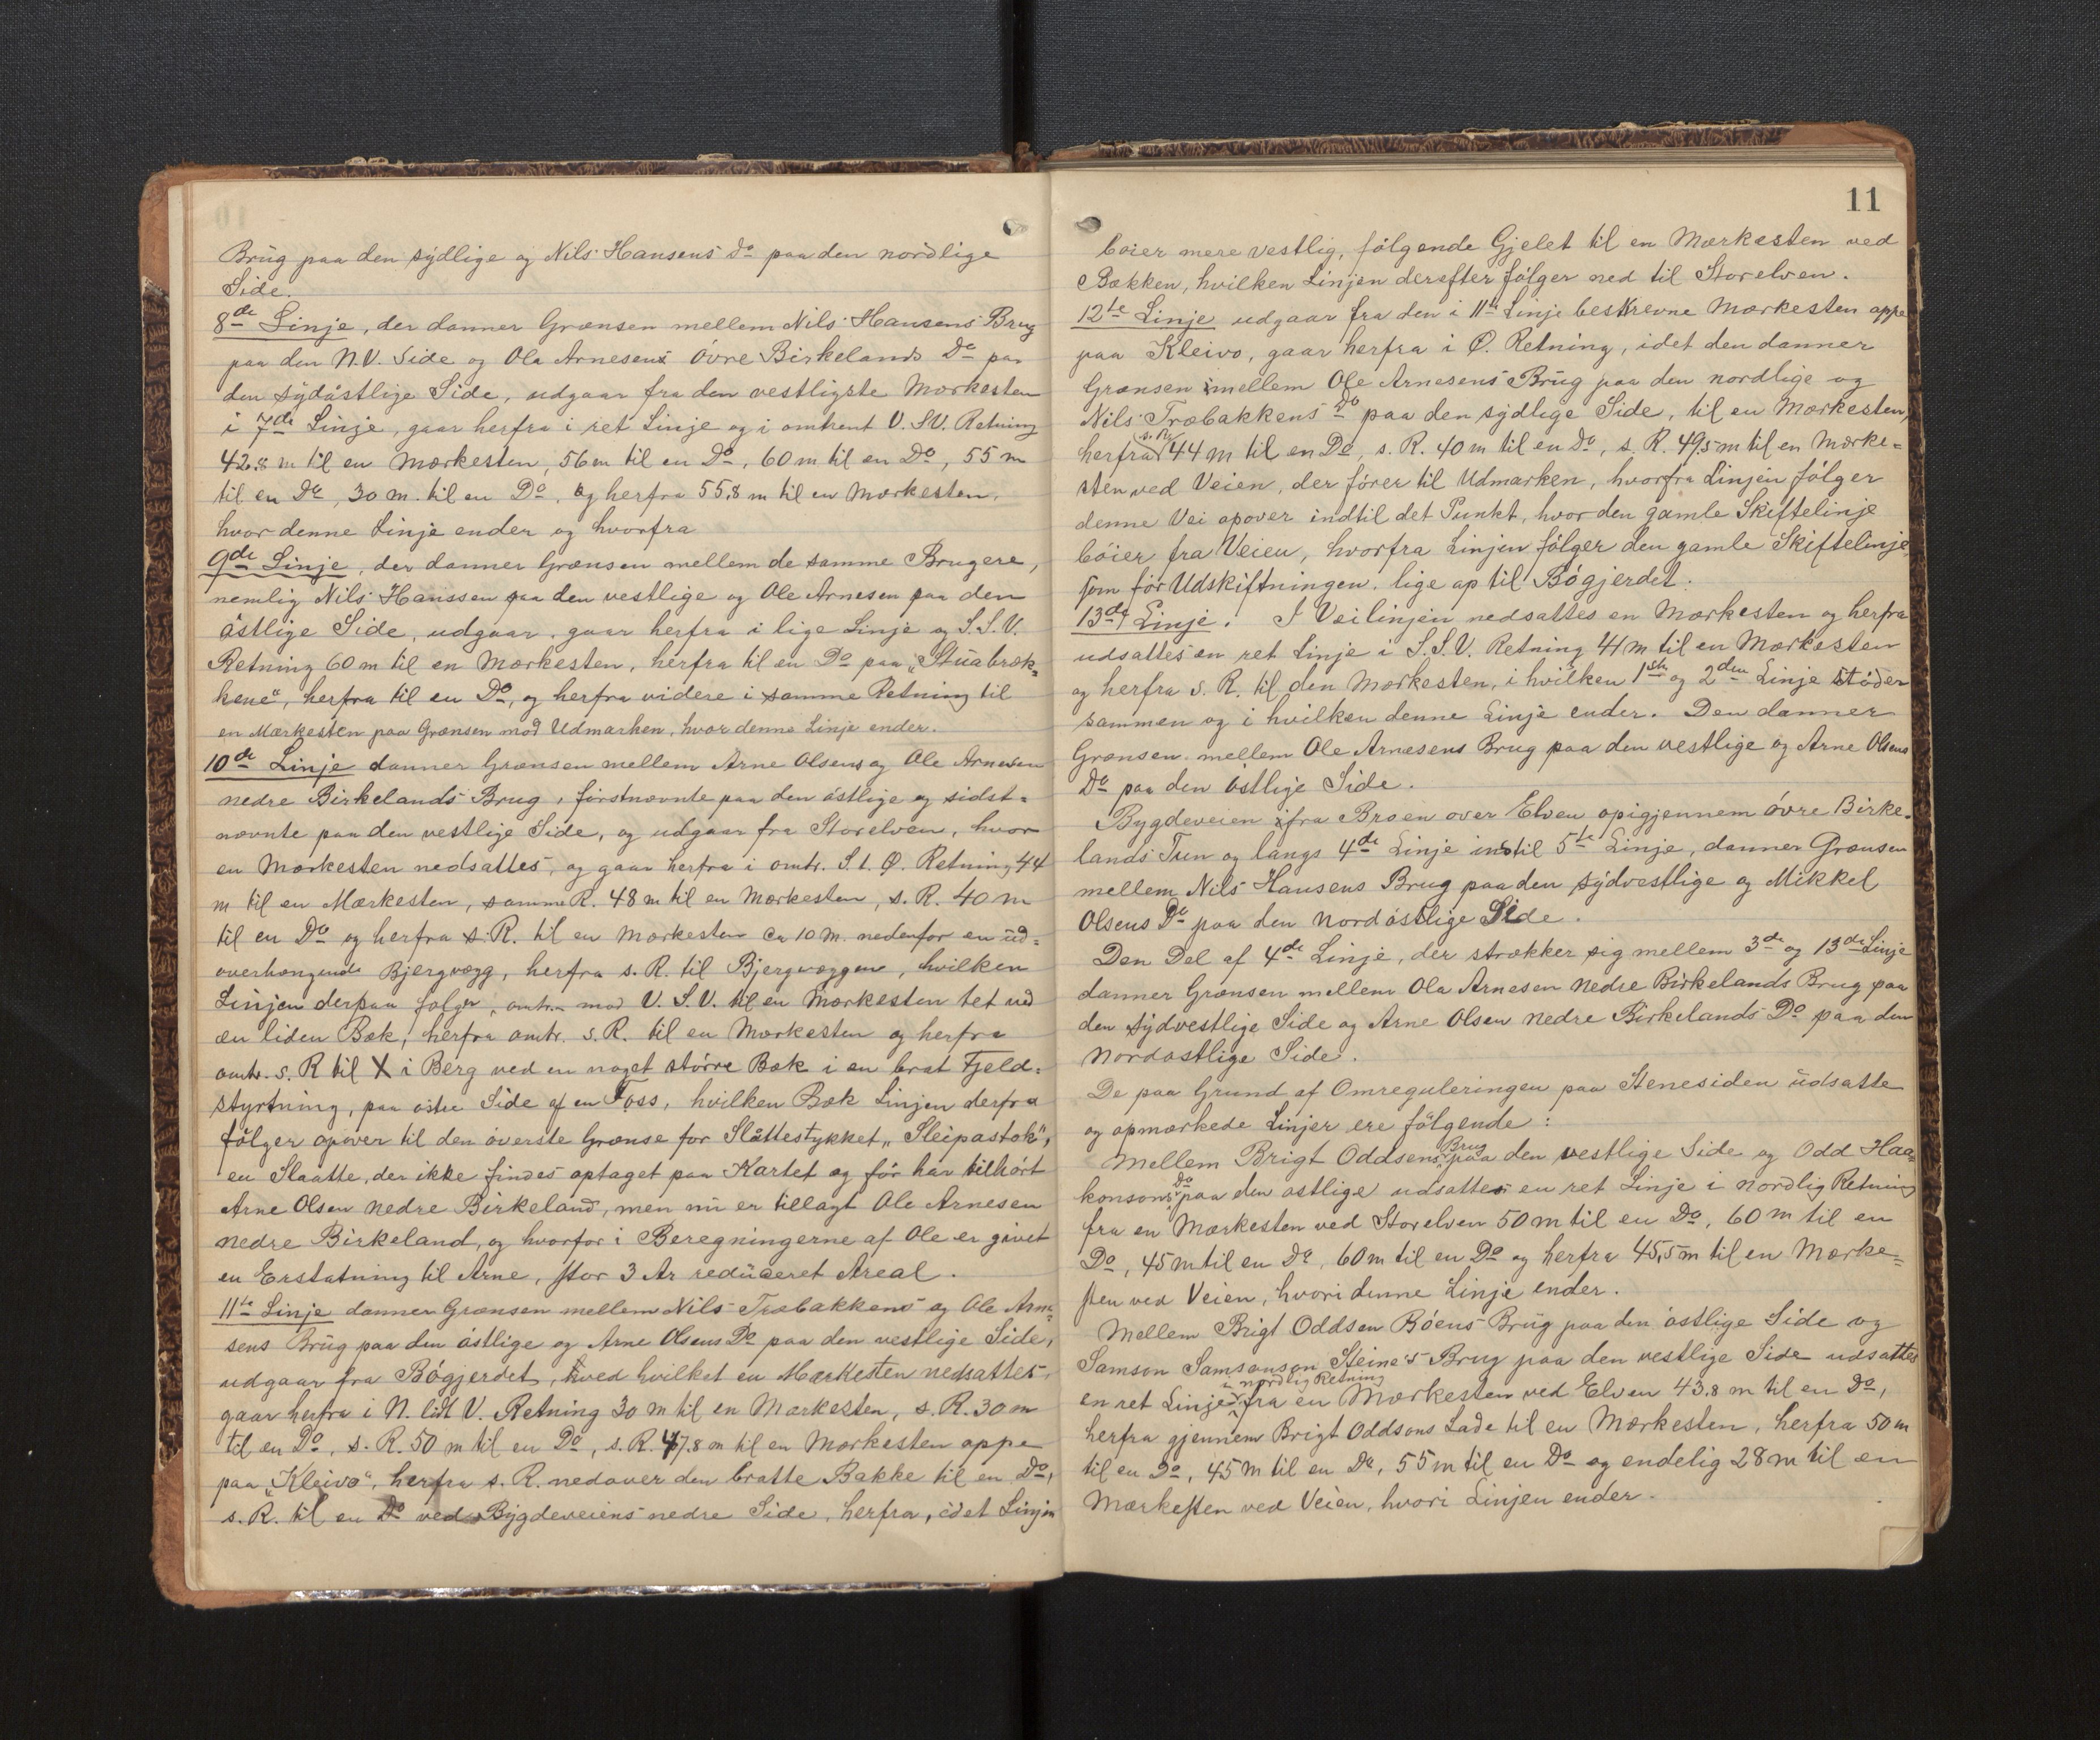 Brug paa den sydlige og Nils Hansens Do paa den nordlige
Side.
8de Linje, der danner Grænsen mellem Nils Hansens Brug
paa den N.V. Side og Ola Arnesens øvre Birkelands Do paa
den sydøstlige Side, udgaar fra den vestligste Mærkesten
i 7de Linje, gaar herfra i ret Linje og i omtrent V.S.V. Retning
42.8 m til en Mærkesten, 56 m til en Do, 60 m til en Do, 55 m
til en Do, 30 m. til en Do, og herfra 55,8 m til en Mærkesten,
hvor denne Linje ender og hvorfra
9de Linje, der danner Grænsen mellem de samme Brugere,
nemlig Nils Hanssen paa den vestlige og Ole Arnesen paa den
østlige Side, udgaar, gaar herfra i lige Linje og S.S.V.
Retning 60 m til en Mærkesten, herfra til en Do paa „Stuabræk-
kene", herfra til en Do, og herfra videre i samme Retning til
en Mærkesten paa Grænsen mod Udmarken, hvor denne Linje ender.
10de Linje danner Grænsen mellem Arne Olsens og Ole Arnesen
nedre Birkelands Brug, førstnævnte paa den østlige og sidst-
nævnte paa den vestlige Side, og udgaar fra Storelven, hvor
en Mærkesten nedsattes, og gaar herfra i omtr. S. t. Ø. Retning 44
m til en Mærkesten, samme R. 48 m til en Mærkesten, s. R. 40 m
til en Do og herfra s. R. til en Mærkesten ca 10 m. nedenfor en ud-
overhængende Bjergvæg, herfra s. R. til Bjergvæggen, hvilken
Linjen derpaa følger, omtr. mod V. S. V. til en Mærkesten tet ved
en liden Bæk, herfra omtr. s. R. til en Mærkesten og herfra
omtr. s. R til X i Berg ved en noget større Bæk i en brat Fjeld-
styrtning, paa østre Side af en Foss, hvilken Bæk Linjen derfra
følger opover til den øverste Grænse for Slåttestykket „Sleipastøk",
en Slaatte, der ikke findes optaget paa Kartet og før har tilhørt
Arne Olsen nedre Birkeland, men nu er tillagt Ole Arnesen
nedre Birkeland, og hvorfor i Beregningerne af Ole er givet
en Erstatning til Arne, stor 3 Ar reduceret Areal.
11te Linje danner Grænsen mellem Nils Træbakkens og Ole Arne-
sens Brug paa den østlige og Arne Olsens Do paa den vestlige Side,
udgaar fra Bøgjerdet, ved hvilket en Mærkesten nedsattes,
gaar herfra i N. lidt V. Retning 30 m til en Mærkesten, s. R. 30 m
til en Do, s. R. 50 m til en Do, s. R. 47.8 m til en Mærkesten oppe
paa „Kleivo", herfra s. R. nedover den bratte Bakke til en Do,
s. R. til en Do ved Bygdeveiens nedre Side, herfra, idet Linjen
11
bøier mere vestlig, følgende Gjelet til en Mærkesten ved
Bækken, hvilken Linjen derefter følger ned til Storelven.
12te Linje udgaar fra den i 11te Linje beskrevne Mærkesten oppe
paa Kleivo, gaar herfra i Ø. Retning, idet den danner
Grænsen mellem Ole Arnesens Brug paa den nordlige og
Nils Træbakkens Do paa den sydlige Side, til en Mærkesten,
herfra s. R. 44 m til en Do, s. R. 40 m til en Do, s. R. 49,5 m til en Mærke-
sten ved Veien, der fører til Udmarken, hvorfra Linjen følger
denne Vei opover indtil det Punkt, hvor den gamle Skiftelinje
bøier fra Veien, hvorfra Linjen følger den gamle Skiftelinje
som før Udskiftningen. lige op til Bøgjerdet.
13de Linje. I Veilinjen nedsattes en Mærkesten og herfra
udsattes en ret Linje i S.S.V. Retning 41 m til en Mærkesten
og herfra s. R. til den Mærkesten, i hvilken 1ste og 2den Linje støder
sammen og i hvilken denne Linje ender. Den danner
Grænsen mellem Ole Arnesens Brug paa den vestlige og Arne Olsens
Do paa den østlige Side.
Bygdeveien fra Broen over Elven opigjennem øvre Birke-
lands Tun og langs 4de Linje indtil 5te Linje, danner Grænsen
mellem Nils Hansens Brug paa den sydvestlige og Mikkel
Olsens Do paa den nordøstlige Side.
Den Del af 4de Linje, der strækker sig mellem 3de og 13de Linje
danner Grænsen mellem Ola Arnesen nedre Birkelands Brug paa
den sydvestlige Side og Arne Olsen nedre Birkelands Do paa den
nordøstlige Side.
De paa Grund af Omreguleringen paa Stenesiden udsatte
og opmærkede Linjer ere følgende:
Mellem Brigt Oddsens Brug paa den vestlige Side og Odd Haa-
konsons Do paa den østlige udsattes en ret Linje i nordlig Retning
fra en Mærkesten ved Storelven 50 m til en Do, 60 m til en
Do, 45 m til en Do, 60 m til en Do og herfra 45,5 m til en Mærke-
sten ved Veien, hvori denne Linje ender.
Mellem Brigt Oddsen Bøens Brug paa den østlige Side og
Samson Samsonson Steine's Brug paa den vestlige Side udsattes
en ret Linje i nordlig Retning fra en Mærkesten ved Elven 43,8 m til en Do,
herfra gjennem Brigt Oddsons Lade til en Mærkesten, herfra 50 m
til en Do, 45 m til en Do, 55 m til en Do og endelig 28 m til en
Mærkesten ved Veien, hvori Linjen ender.